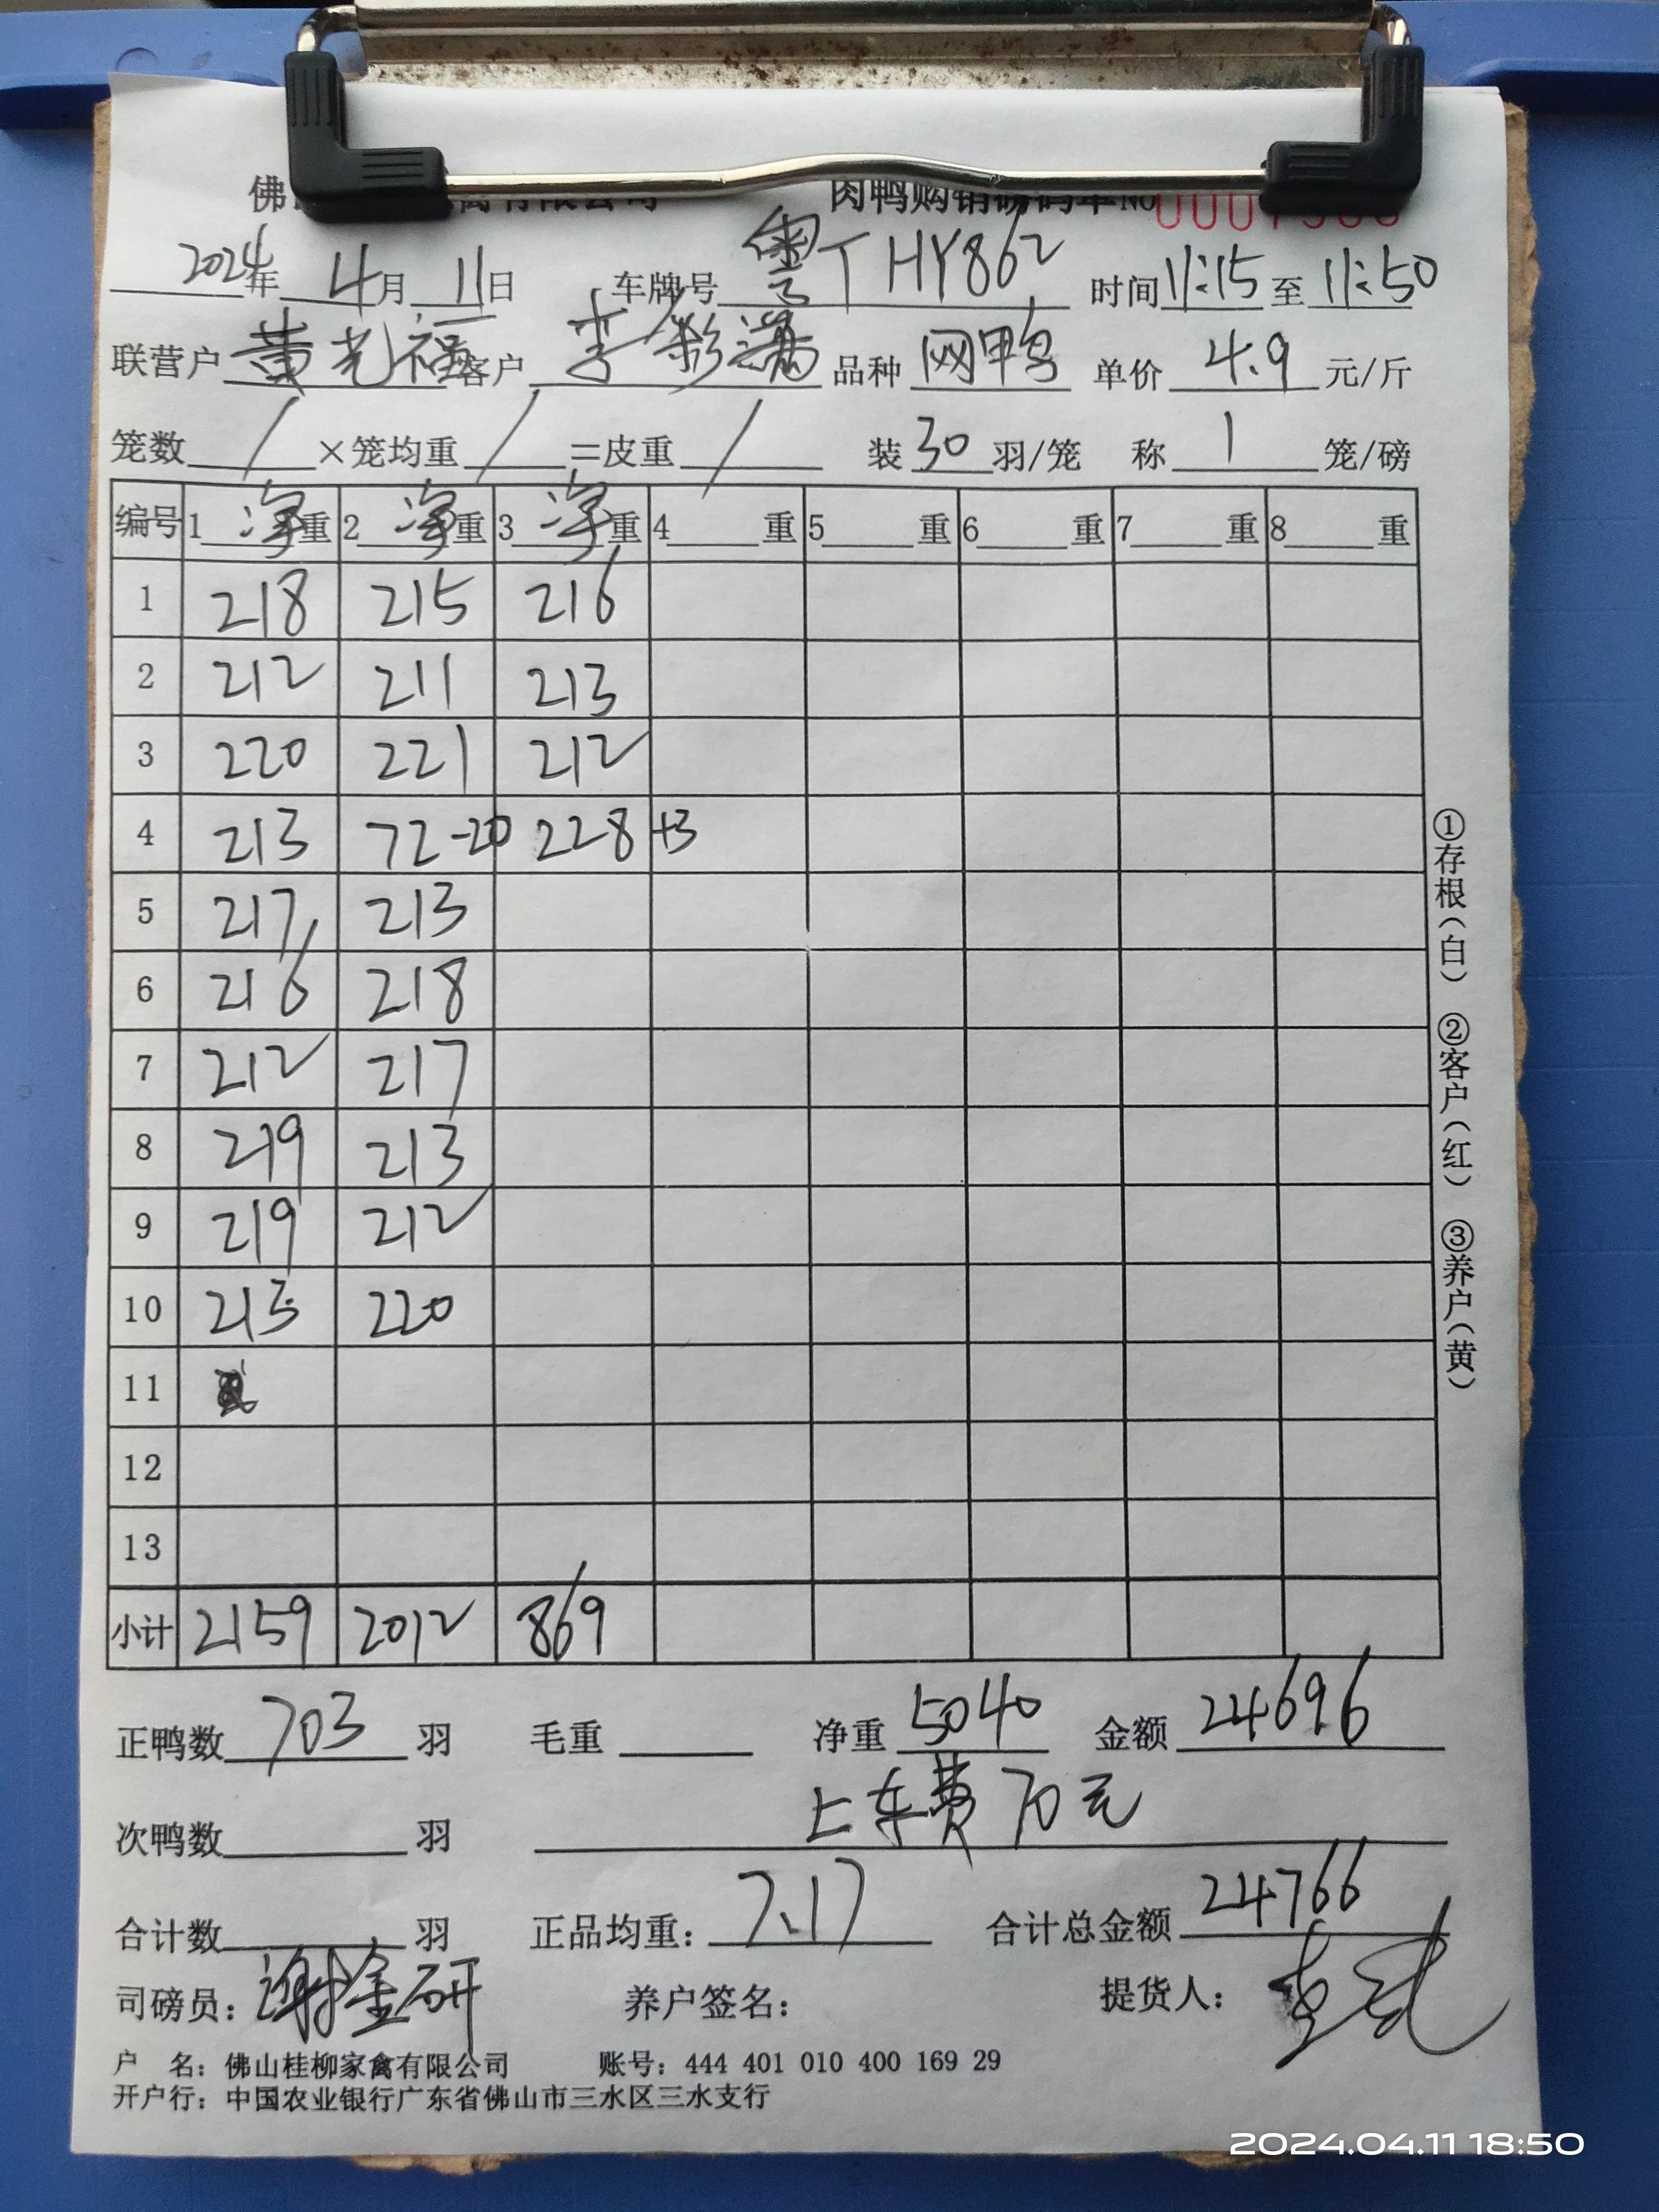 肉鸭购销磅码单NO
2024年 4月 11日 车牌号 粤T HY862 时间 11:15 至 11:50
联营户 黄光福 客户 李彩满 品种 网鸭 单价 4.9 元/斤
笼数 / ×笼均重 / =皮重 / 装 30 羽/笼 称 1 笼/磅
编号 1 净 重 2 净 重 3 净 重 4 重 5 重 6 重 7 重 8 重
1 218 215 216
2 212 211 213
3 220 221 212
4 213 72-20 228 +3
5 217 213
6 216 218
7 212 217
8 219 213
9 219 212
10 213 220
11
12
13
小计 2159 2012 869
正鸭数 703 羽 毛重 净重 5040 金额 24696
次鸭数 羽 上车费70元
合计数 羽 正品均重: 7.17 合计总金额 24766
司磅员: 谢金研 养户签名: 提货人:
户 名: 佛山桂柳家禽有限公司 账号: 444 401 010 400 169 29
开户行: 中国农业银行广东省佛山市三水区三水支行
①存根(白) ②客户(红) ③养户(黄)
2024.04.11 18:50